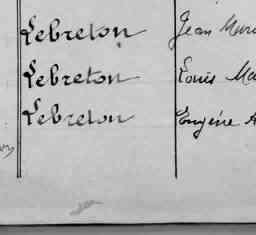 Lebreton Jean
Lebreton Louis
Lebreton Eugène